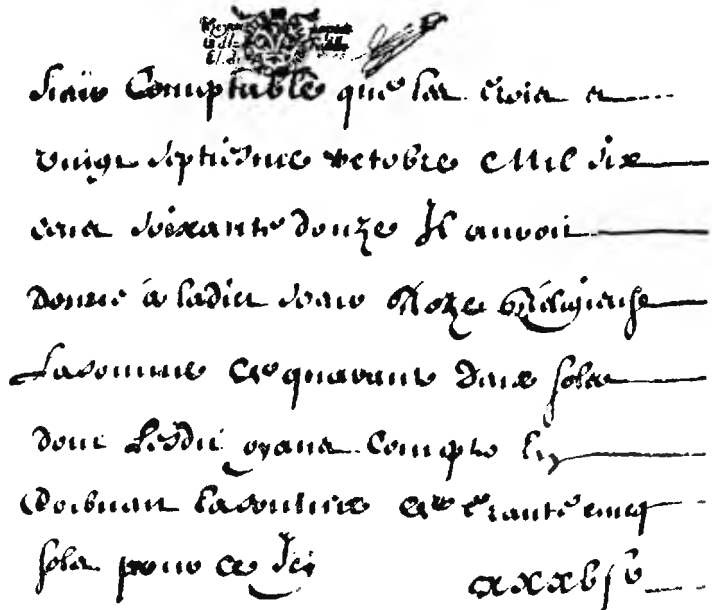 Comptable que les trois et
vingt septiesme octobre Mil six
cens soixante douze Il auroit
donné à ladicte Roze Religieuse
La somme de quarante deux sols
dont Lesdit oyans Compte Luy
Doibuent La somme de trante cinq
sols pour ce Icy xxxb s